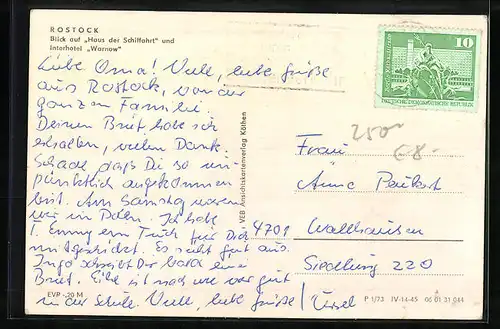 ROSTOCK
Blick auf „Haus der Schiffahrt“ und
Interhotel „Warnow“
Liebe Oma! Viele, liebe Grüße
aus Rostock, von der
ganzen Familie.
Deinen Brief habe ich
erhalten, vielen Dank.
Schade, daß Du so un-
pünktlich angekommen
bist. Am Samstag waren
wir in Polen. Ich habe
T. Emmy ein Tuch für Dich
mitgeschickt. Es sieht gut aus.
Ingo schreibt Dir bald ein
Brief. Elke ist nach wie vor gut
in der Schule. Viele, liebe Grüße
Ursel
EVP -,20 M
VEB Ansichtskartenverlag Köthen
10
DEUTSCHE DEMOKRATISCHE REPUBLIK
2500
€8-
Frau
Anna
4701
Wallhausen
Siedlung 220
P 1/73 IV-14-45 06 01 31 044